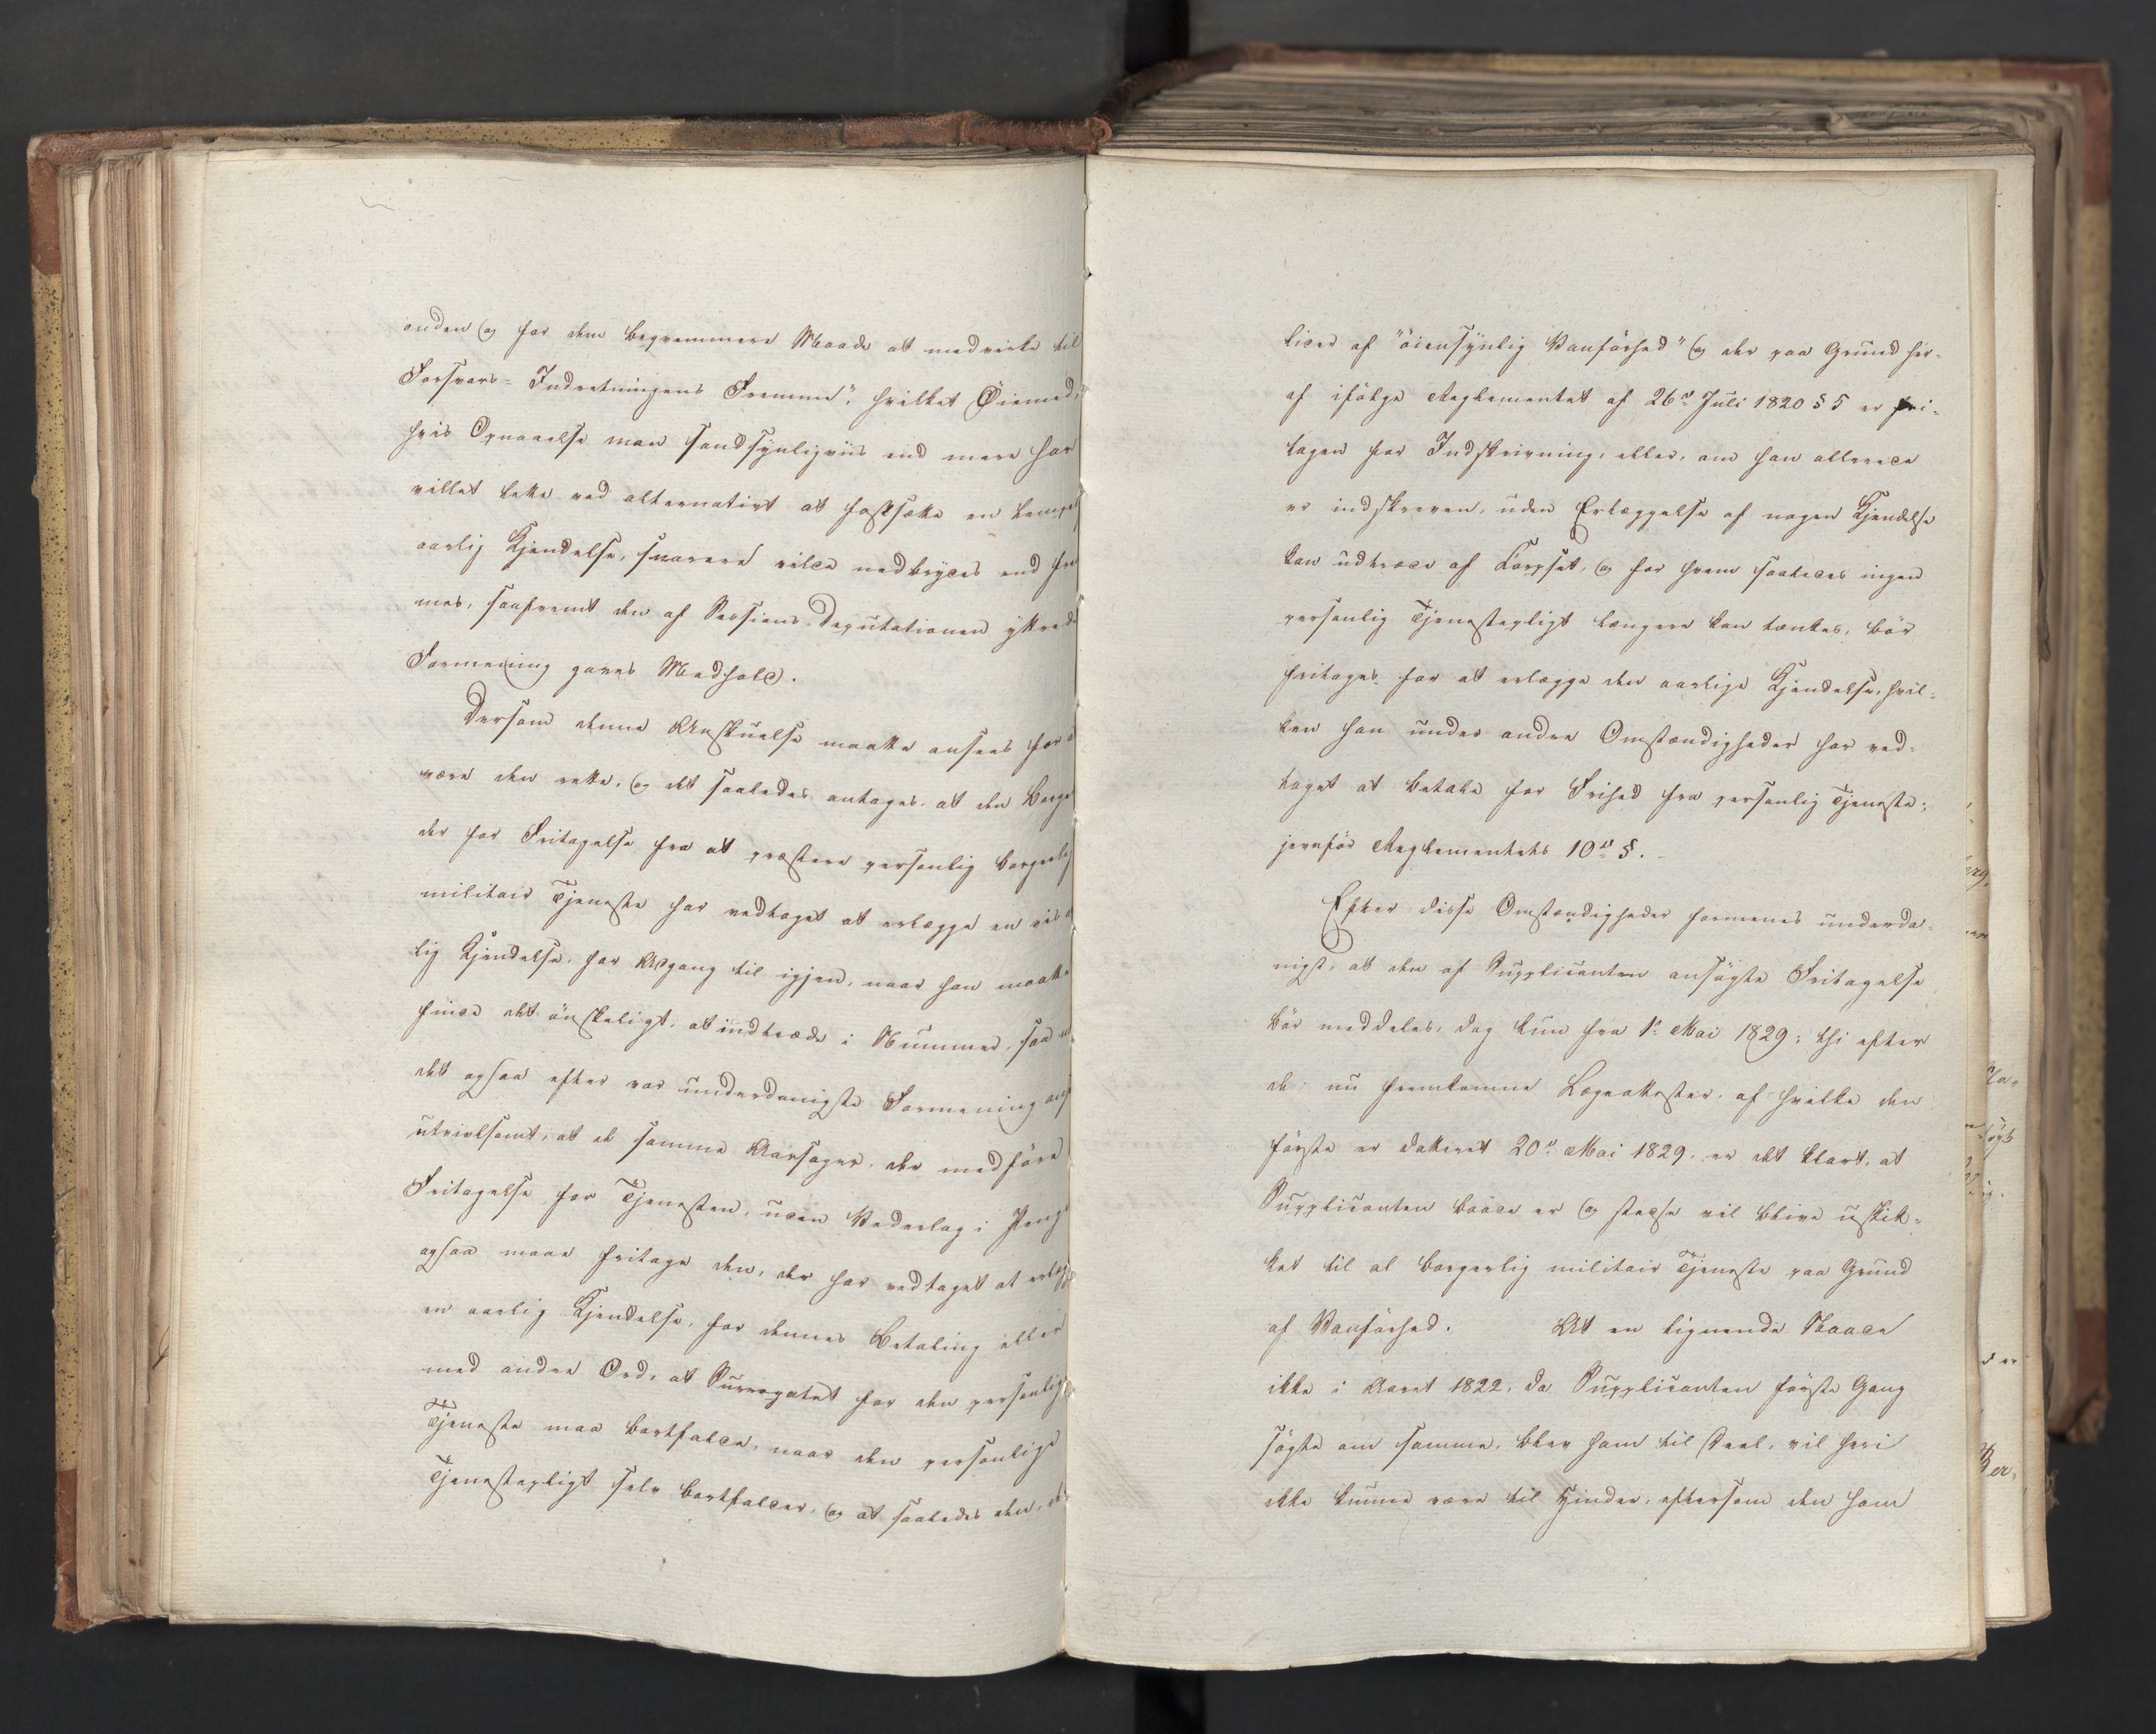 anden og for dem beqvemmere Maade at medvirke til
Forsvars-Indretningens Fremme", hvilket Øiemed,
hvis Opnaaelse man sandsynligviis end mere har
villet lette ved alternativt at fastsætte en lempel
aarlig Kjendelse, snarere vilde nedbrydes end frem
mes, saafremt den af Sessions-Deputationen yttrede
Formening gaves Medhold.
Dersom denne Anskuelse maatte ansees for a
være den rette, og det saaledes antages, at den Borger
der for Fritagelse fra at præstere personlig borgerlig
militair Tjeneste har vedtaget at erlægge en vis a
lig Kjendelse, har Adgang til igjen, naar han maatte
finde det ønskeligt, at indtræde i Nummer, saa er
det ogsaa efter vor underdanigste Formening
utvivlsomt, at de samme Aarsager, der medføre
Fritagelse for Tjenesten, uden Vederlag i Penge
ogsaa maae fritage den, der har vedtaget at erlægge
en aarlig Kjendelse, for dennes Betaling eller
med andre Ord, at Surrogatet for den personlige
Tjeneste maa bortfalde, naar den personlige
Tjenestepligt selv bortfalder, og at saaledes den, der
lider af "öiensÿnlig Vanförhed" og der paa Grund her-
af ifölge Reglementet af 26de Juli 1820 § 5 er fri-
tagen for Indskrivning, eller, om han allerede
er indskreven, uden Erlæggelse af nogen Kjendelse
kan udtræde af Corpset, og for hvem saaledes ingen
personlig Tjenestepligt længere kan tænkes, bör
fritages for at erlægge den aarlige Kjendelse, hvil-
ken han under andre Omstændigheder har ved-
taget at betale for Frihed fra personlig Tjeneste;
jevnför Reglementets 10de §.
Efter disse Omstændigheder formenes underda-
nigst, at den af Supplicanten ansögte Fritagelse
bör meddeles, dog kun fra 1ste Mai 1829; thi efter
de nu fremkomne Lægeattester, af hvilke den
förste er datteret 20de Mai 1829, er det klart, at
Supplicanten baade er og stedse vil blive uskik-
ket til al borgerlig militair Tjeneste paa Grund
af Vanförhed. At en lignende Naade
ikke i Aaret 1822, da Supplicanten förste Gang
sögte om samme, blev ham til Deel, vil heri
ikke kunne være til Hinder, eftersom den ham